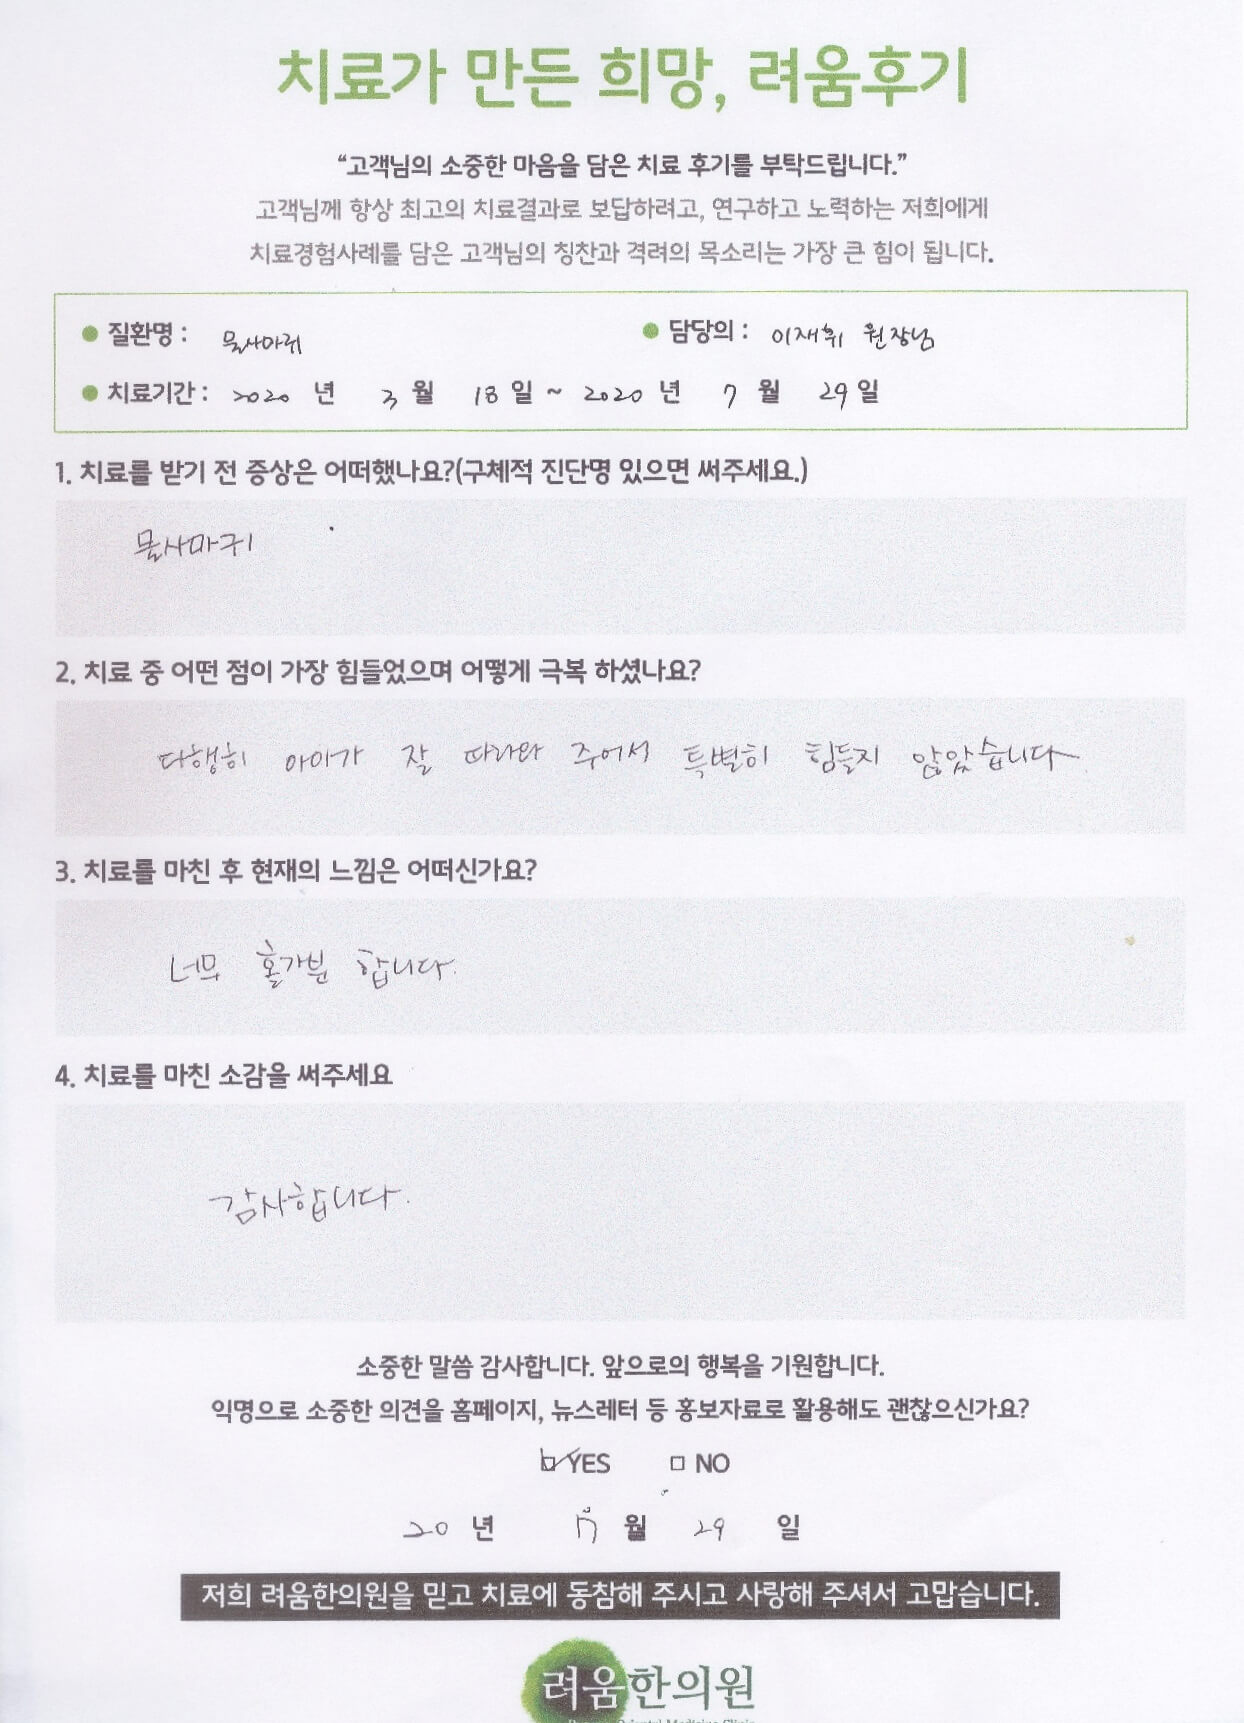 치료가 만든 희망, 려움후기
“고객님의 소중한 마음을 담은 치료 후기를 부탁드립니다.”
고객님께 항상 최고의 치료결과로 보답하려고, 연구하고 노력하는 저희에게
치료경험사례를 담은 고객님의 칭찬과 격려의 목소리는 가장 큰 힘이 됩니다.
● 질환명 : 물사마귀 ● 담당의 : 이재휘 원장님
● 치료기간 : 2020 년 3 월 18 일 ~ 2020 년 7 월 29 일
1. 치료를 받기 전 증상은 어떠했나요?(구체적 진단명 있으면 써주세요.)
물사마귀
2. 치료 중 어떤 점이 가장 힘들었으며 어떻게 극복 하셨나요?
다행히 아이가 잘 따라와 주어서 특별히 힘들지 않았습니다
3. 치료를 마친 후 현재의 느낌은 어떠신가요?
너무 홀가분 합니다.
4. 치료를 마친 소감을 써주세요
감사합니다.
소중한 말씀 감사합니다. 앞으로의 행복을 기원합니다.
익명으로 소중한 의견을 홈페이지, 뉴스레터 등 홍보자료로 활용해도 괜찮으신가요?
☑ YES □ NO
20 년 7 월 29 일
저희 려움한의원을 믿고 치료에 동참해 주시고 사랑해 주셔서 고맙습니다.
려움한의원
Oriental Medicine Clinic